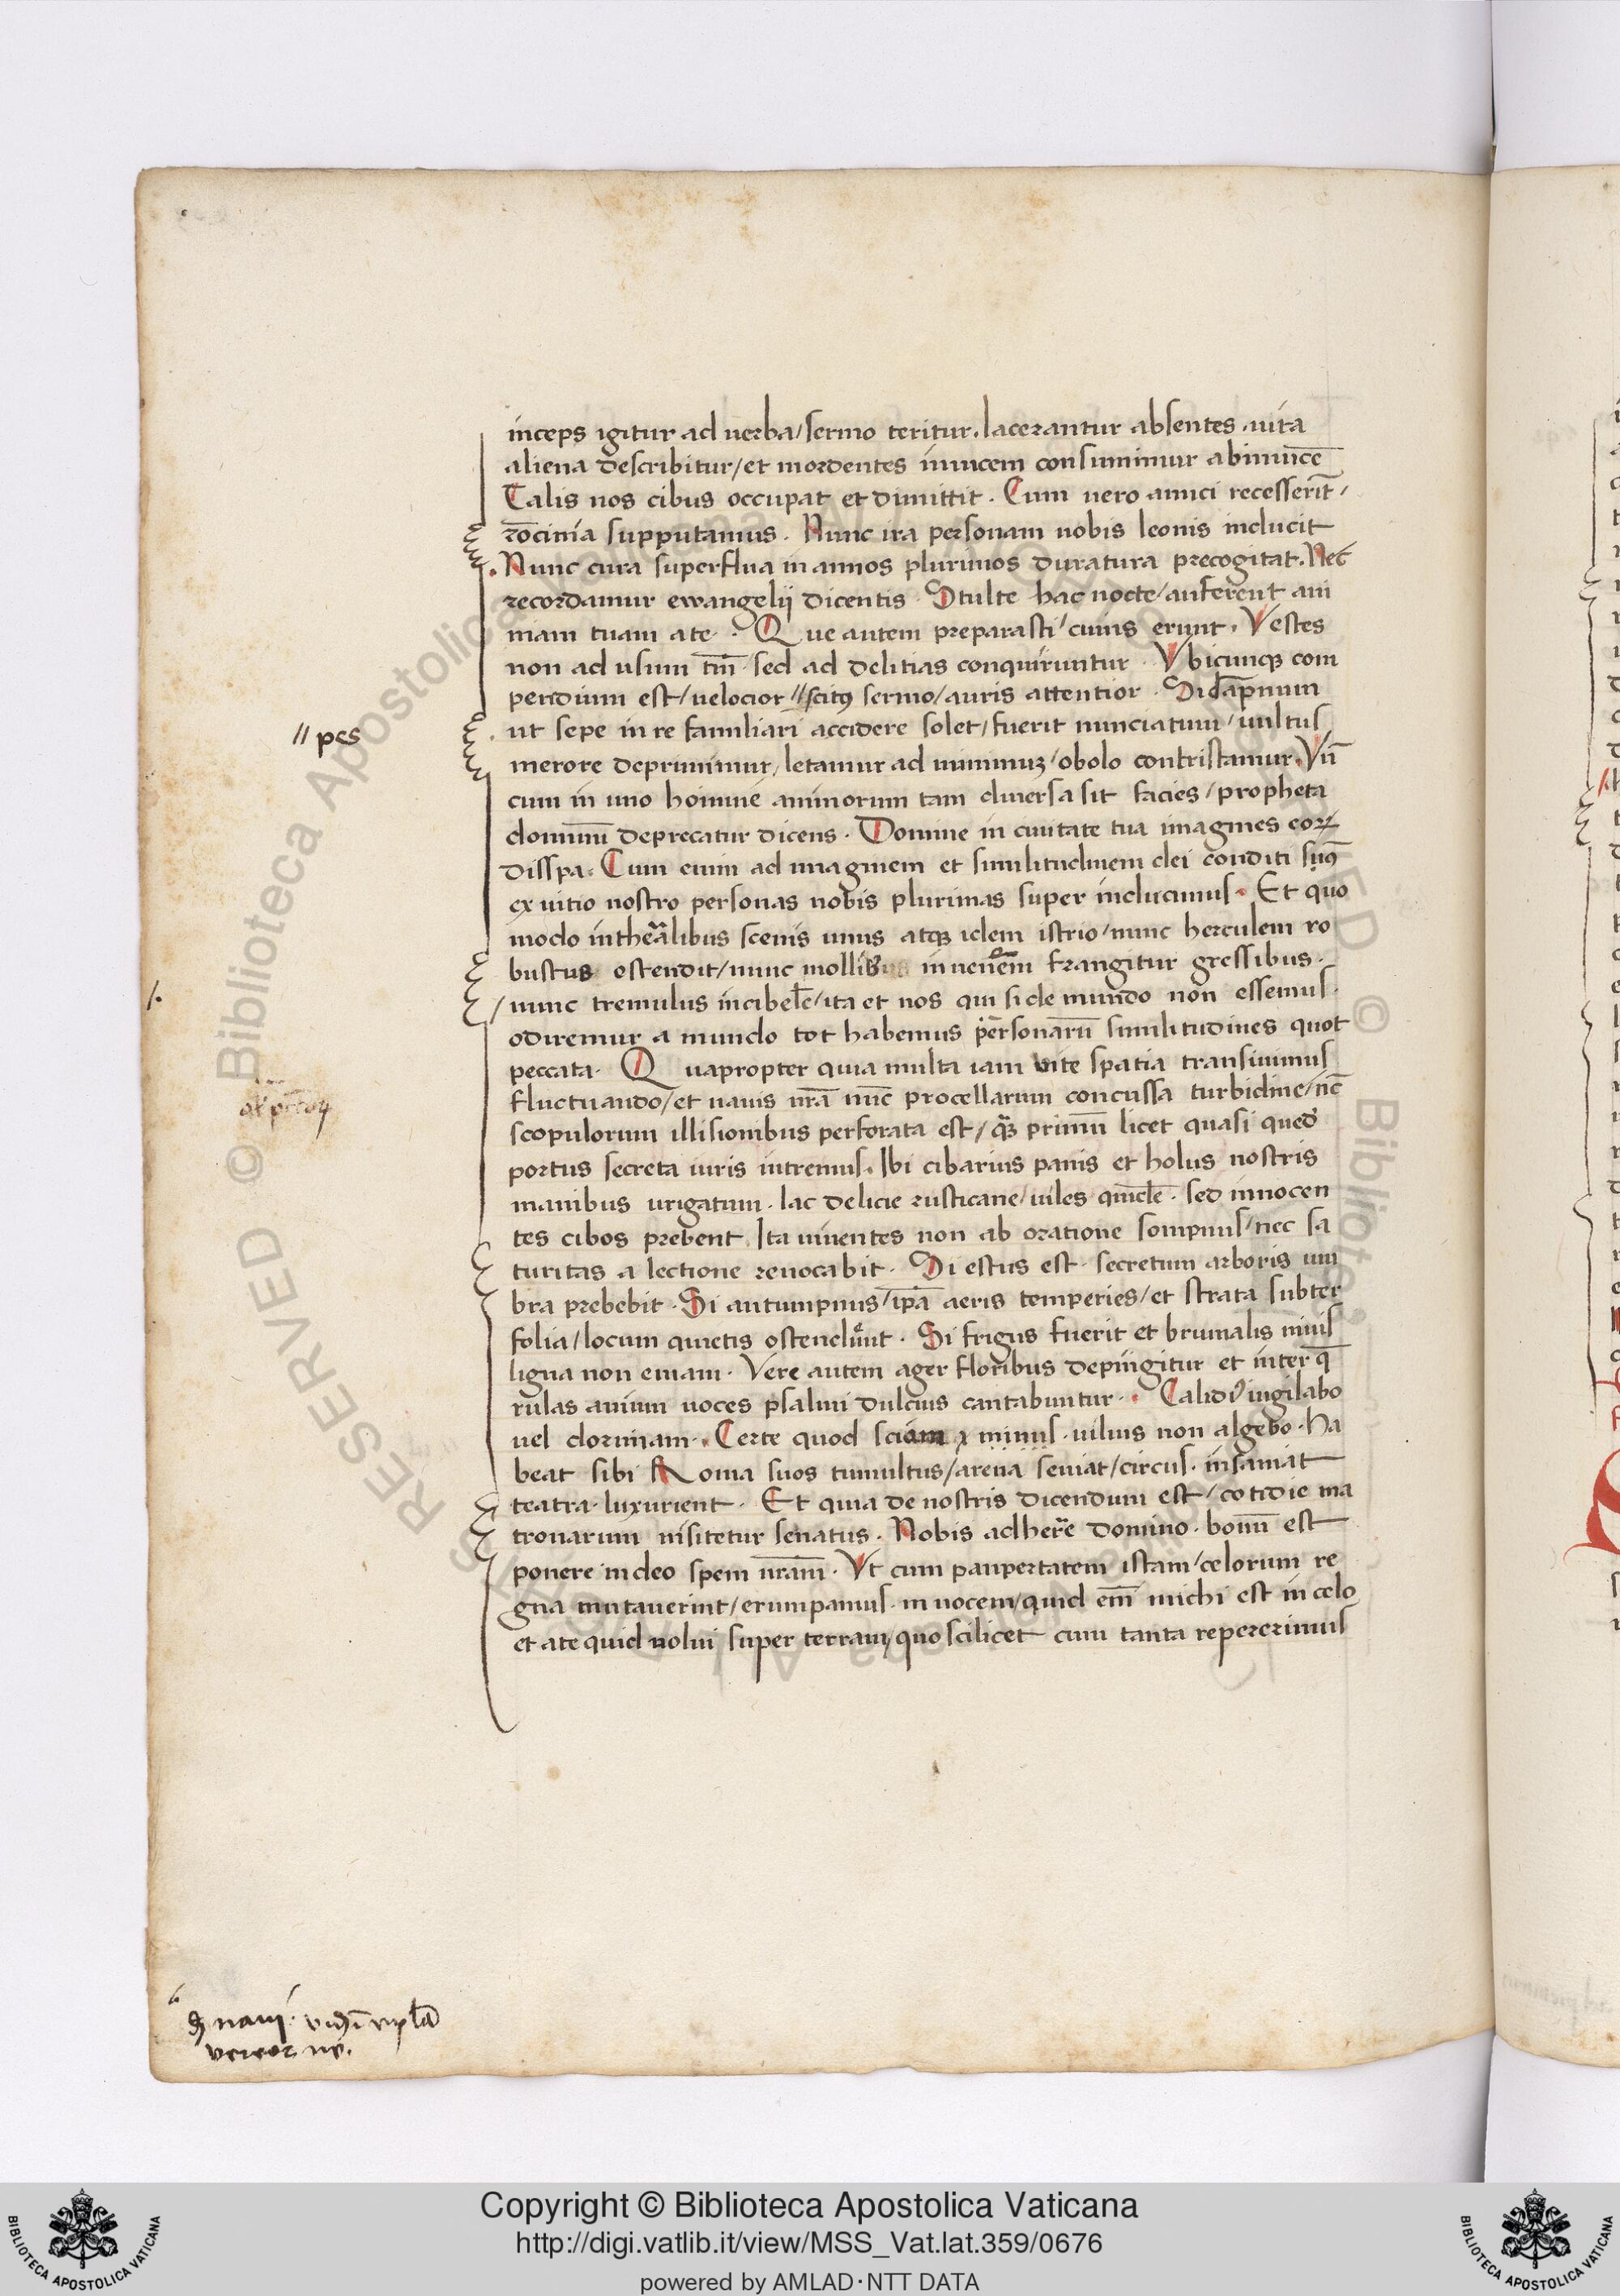 inceps igitur ad uerba/sermo teritur. lacerantur absentes. uita
aliena describitur/et mordentes inuicem consumimur abinuicē
Talis nos cibus occupat et dimittit. Cum uero amici recesserīt/
rōcinia supputamus. Nunc ira personam nobis leonis inducit
Nunc cura superflua in annos plurimos duratura precogitat. Nec
recordamur ewangelij dicentis. Stulte hac nocte/auferent ani
mam tuam a te. Que autem preparasti/cuius erunt. Vestes
non ad usum tm̄/sed ad delitias conquiruntur. Vbicunqꝫ com
pendium est/uelocior //scitꝰ sermo/auris attentior. Si dāpnum
// pes
ut sepe in re familiari accidere solet/fuerit nunciatum/uultus
merore deprimimur/letamur ad nimmuꝫ/obolo contristamur. Vn̄
cum in uno homine animorum tam diuersa sit facies/propheta
dominū deprecatur dicens. Domine in ciuitate tua imagines eoꝝ
disspa. Cum enim ad imaginem et similitudinem dei conditi simꝰ
ex uitio nostro personas nobis plurimas super inducimus. Et quo
modo in theatralibus scenis unus atqꝫ idem istrio/nunc herculem ro
bustus ostendit/nunc mollis in uenerem frangitur gressibus.
/nunc tremulus in cibele/ita et nos qui si de mundo non essemus.
odiremur a mundo tot habemus personarū similitudines quot
peccata. Quapropter quia multa iam uite spatia transiuimus
fluctuando/et nauis nr̄a nūc procellarum concussa turbidine/nc̄
scopulorum illisionibus perforata est/qꝫ primū licet quasi qued
portus secreta iuris intremus. Ibi cibarius panis et holus nostris
manibus irigatum. lac delicie rusticane/uiles quidē. sed innocen
tes cibos prebent. Ita uiuentes non ab oratione sompnus/nec sa
turitas a lectione reuocabit. Si estus est. secretum arboris um
bra prebebit. Si autumpnus/ip̄a aeris temperies/et strata subter
folia/locum quietis ostendunt. Si frigus fuerit et brumalis niuis
ligna non emam. Vere autem ager floribus depingitur et inter q̄
rulas auium uoces psalmi dulcius cantabuntur. Calidꝰ uigilabo
uel dormiam. Certe quod sciam minus. uilius non algebo. ha
beat sibi Roma suos tumultus/arena seuiat/circus. insaniat
teatra. luxurient. Et quia de nostris dicendum est/cotidie ma
tronarum uisitetur senatus. Nobis adherere domino. bonū est
ponere in deo spem nr̄am. Vt cum paupertatem istam/celorum re
gna mutauerint/erumpamus. in uocem/quid em̄ michi est in celo
et a te quid uolui super terram/quo scilicet cum tanta repererimus
uereor ne.
Copyright © Biblioteca Apostolica Vaticana
http://digi.vatlib.it/view/MSS_Vat.lat.359/0676
powered by AMLAD·NTT DATA